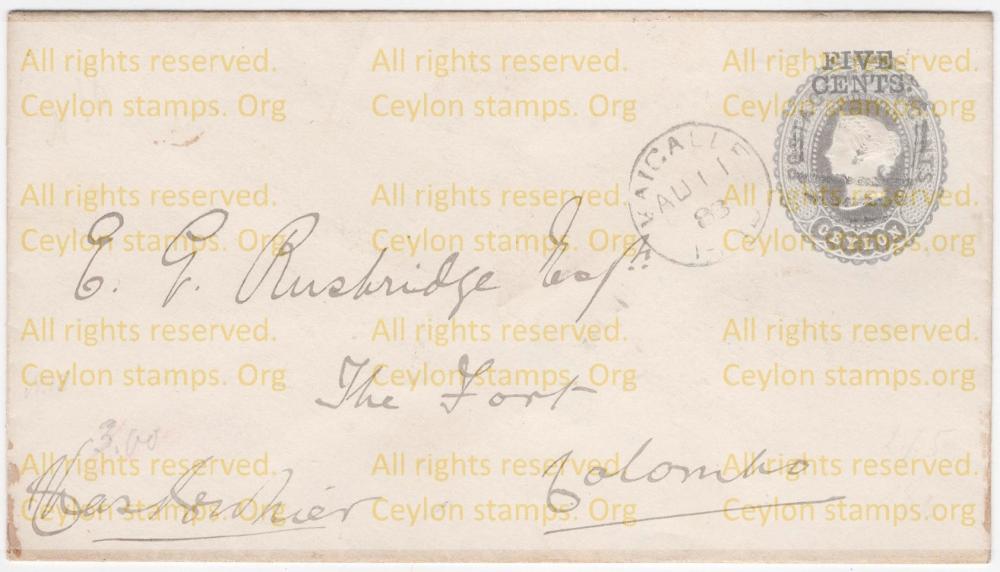 All rights reserved. All rights reserved. All rights reserved.
Ceylon stamps. Org Ceylon stamps. Org Ceylon stamps. org
FIVE
CENTS.
CEYLON
AU 11
83
All rights reserved. All rights reserved. All rights reserved.
Ceylon stamps. Org Ceylon stamps. Org Ceylon stamps. org
E. G. Rusbridge Esqre
All rights reserved. All rights reserved. All rights reserved.
Ceylon stamps. Org Ceylon stamps. Org Ceylon stamps. org
The Fort
3.00
All rights reserved. All rights reserved. All rights reserved.
Ceylon stamps. Org Ceylon stamps. Org Ceylon stamps. org
Colombo